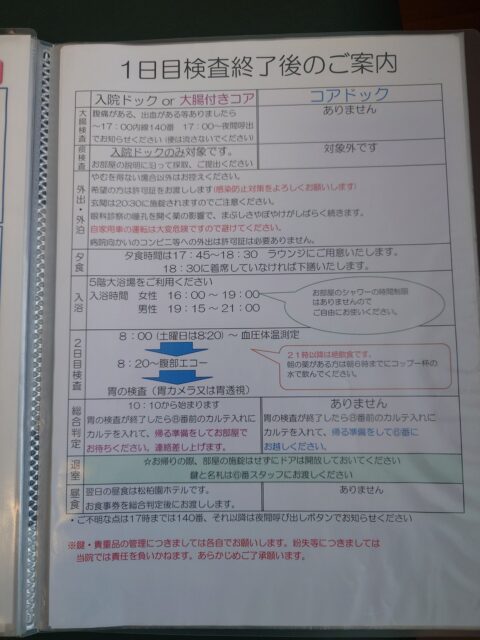 1日目検査終了後のご案内
入院ドック or 大腸付きコア
コアドック
大腸検査
腹痛がある、出血がある等ありましたら
～17：00内線140番　17：00～夜間呼出
でお知らせください（便は流さないでください）
ありません
検査
入院ドックのみ対象です。
お部屋の説明に沿って採取、ご提出ください
対象外です
外出・外泊
やむを得ない場合以外はお控えください。
希望の方は許可証をお渡しします（感染防止対策をよろしくお願いします）
玄関は20:30に施錠されますのでご注意ください。
眼科診察の瞳孔を開く薬の影響で、まぶしさやぼやけがしばらく続きます。
自家用車の運転は大変危険ですので避けてください。
病院向かいのコンビニ等への外出は許可証は必要ありません。
夕食
夕食時間は17：45～18：30　ラウンジにご用意いたします。
18：30に着席していなければ下膳いたします。
入浴
5階大浴場をご利用ください
入浴時間　女性　16：00～19：00
男性　19：15～21：00
お部屋のシャワーの時間制限
はありませんので
ご自由にお使いください。
2日目検査
8：00（土曜日は8:20）～ 血圧体温測定
8：20～腹部エコー
胃の検査（胃カメラ又は胃透視）
21時以降は絶飲食です。
朝の薬がある方は朝6時までにコップ一杯の
水で飲んでください。
総合判定
10：10から始まります
胃の検査が終了したら⑧番前のカルテ入れに
カルテを入れて、帰る準備をしてお部屋で
お待ちください。連絡差し上げます。
ありません
胃の検査が終了したら⑧番前のカルテ入れに
カルテを入れて、帰る準備をして⑥番に
お越しください。
退室
☆お帰りの際、部屋の施錠はせずにドアは開放しておいてください
鍵と名札は⑥番スタッフにお渡しください
昼食
翌日の昼食は松柏園ホテルです。
お食事券を総合判定後にお渡しします。
ありません
・ご不明な点は17時までは140番、それ以降は夜間呼び出しボタンでお知らせください
※鍵・貴重品の管理につきましては各自でお願いします。紛失等につきましては
当院では責任を負いかねます。あらかじめご了承願います。